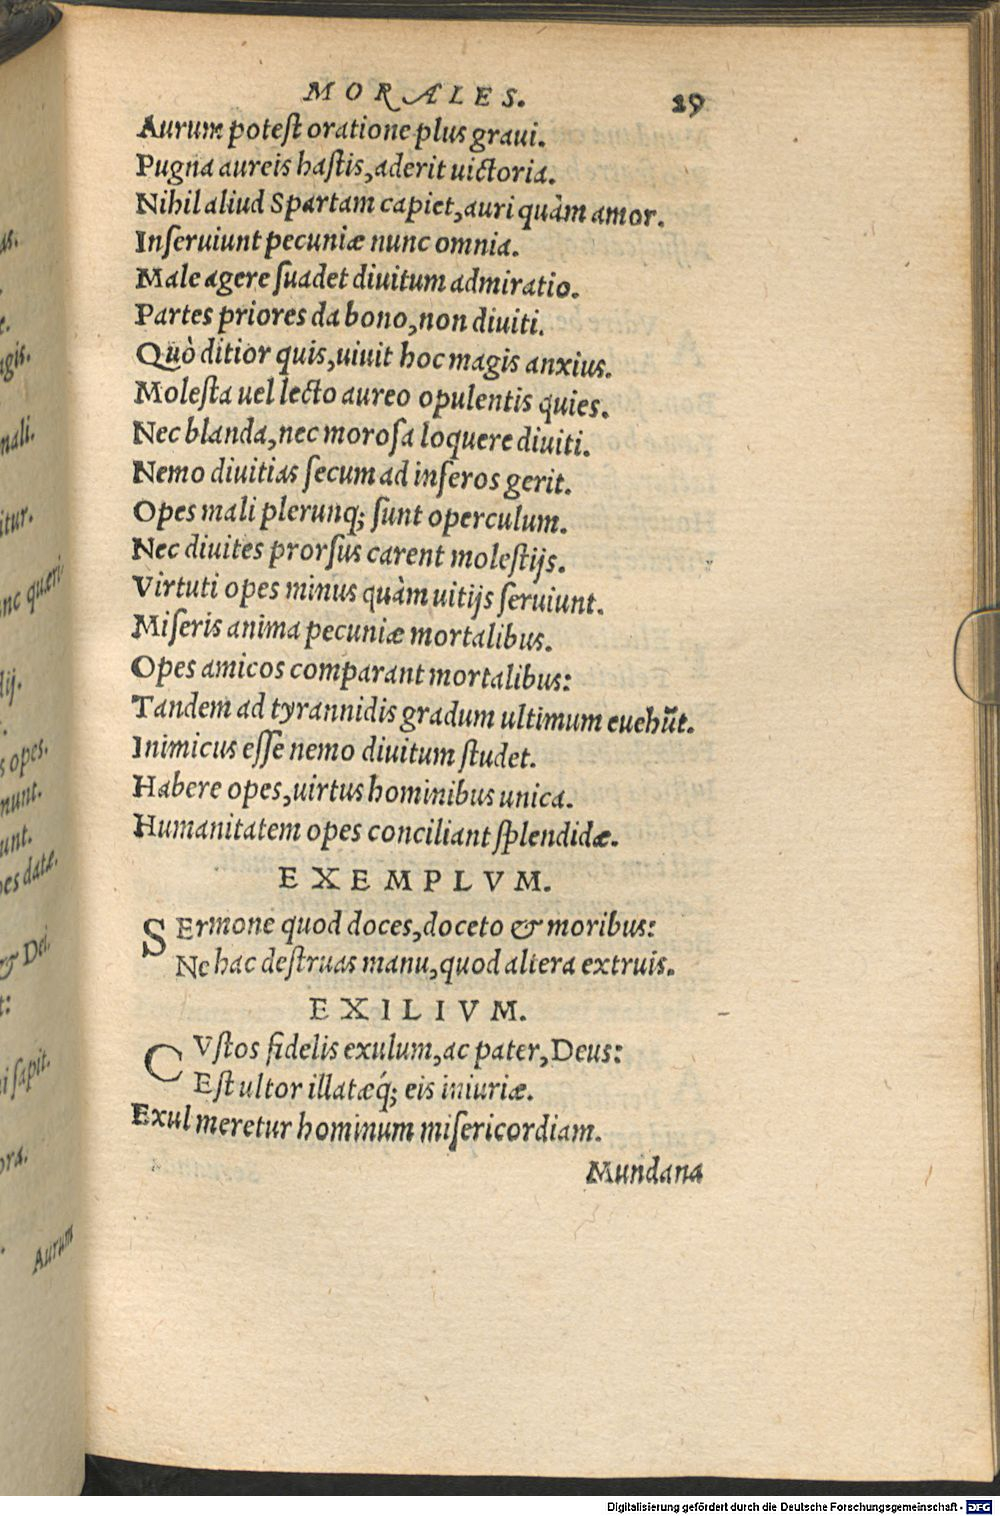 MORALES. 29
Aurum potest oratione plus graui.
Pugna aureis hastis, aderit uictoria.
Nihil aliud Spartam capiet, auri quàm amor.
Inseruiunt pecuniæ nunc omnia.
Male agere suadet diuitum admiratio.
Partes priores da bono, non diuiti.
Quò ditior quis, uiuit hoc magis anxius.
Molesta uel lecto aureo opulentis quies.
Nec blanda, nec morosa loquere diuiti.
Nemo diuitias secum ad inferos gerit.
Opes mali plerunq; sunt operculum.
Nec diuites prorsus carent molestijs.
Virtuti opes minus quàm uitijs seruiunt.
Miseris anima pecuniæ mortalibus.
Opes amicos comparant mortalibus:
Tandem ad tyrannidis gradum ultimum euehũt.
Inimicus esse nemo diuitum studet.
Habere opes, uirtus hominibus unica.
Humanitatem opes conciliant splendidæ.
EXEMPLVM.
SErmone quod doces, doceto & moribus:
Ne hac destruas manu, quod altera extruis.
EXILIVM.
CVstos fidelis exulum, ac pater, Deus:
Est ultor illatæq́; eis iniuriæ.
Exul meretur hominum misericordiam.
Mundana
us.
agis.
nali.
itur.
nc quæri
dij.
s opes.
nunt.
unt.
es datæ.
& Dei.
t:
i sapit.
ora.
Aurum
Digitalisierung gefördert durch die Deutsche Forschungsgemeinschaft - DFG